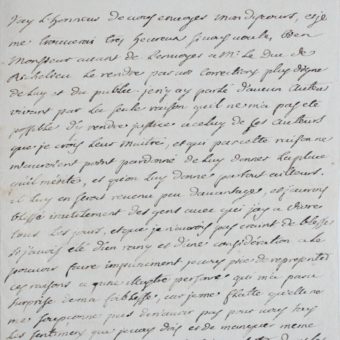 J'ay l'honneur de vous envoyer mon discours, et je
me trouverai tres heureux si vous voulez bien
Monsieur avant de l'envoyer a Mr le Duc de
Richelieu le rendre par vos corrections plus digne
de luy et du public. je n'y ay parlé d'aucun auteur
vivant par la seule raison qu'il ne m'a pas eté
possible d'y rendre justice a celuy de ces auteurs
que je crois leur maitre, et qui par cette raison ne
m'auroient point pardonné de luy donner la place
qu'il merite, et qu'on luy donne partout ailleurs.
il luy en seroit revenu peu d'avantage, et j'aurois
blessé inutilement des gens avec qui j'ay a vivre
tous les jours, et que je n'aurois pas craint de blesser
si j'avois eté d'un rang et d'une consideration a le
pouvoir faire impunement. je vous prie de representer
ces raisons a une illustre personne qui m'a paru
surprise de ma foiblesse, car je me flatte qu'elle ne
me soupçonne pas de n'avoir pas pour vous tous
les sentimens que je vous dois et de manquer meme